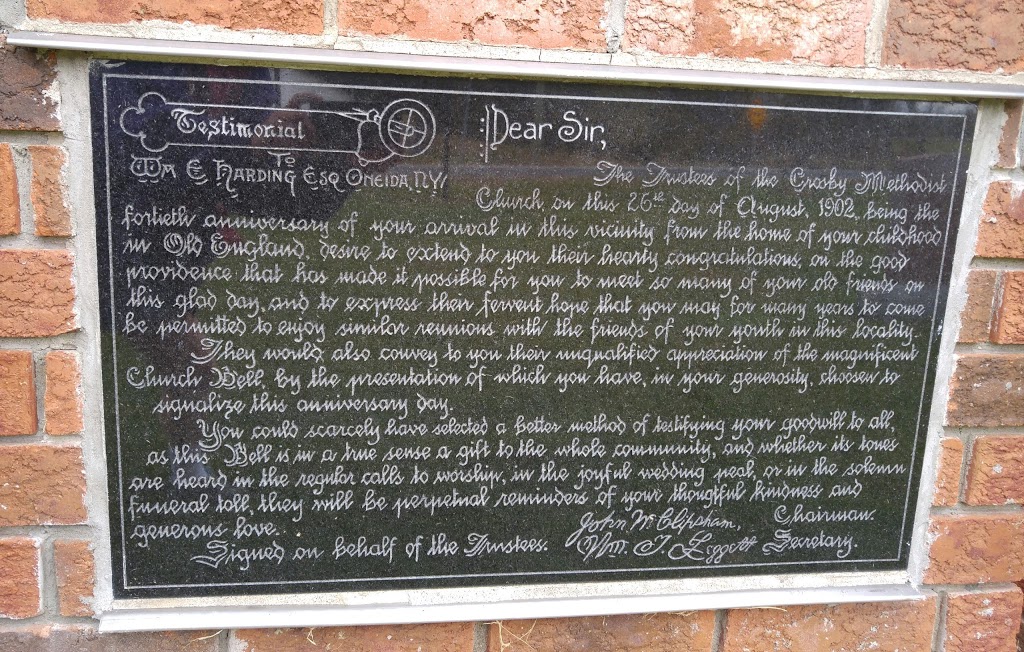 Testimonial
To
Wm E Harding Esq Oneida, N.Y.
Dear Sir,
The Trustees of the Crosby Methodist
Church, on this 26th day of August, 1902, being the
fortieth anniversary of your arrival in this vicinity from the home of your childhood
in Old England, desire to extend to you their hearty congratulations, on the good
providence that has made it possible for you to meet so many of your old friends on
this glad day, and to express their fervent hope that you may for many years to come
be permitted to enjoy similar reunions with the friends of your youth in this locality.
They would also convey to you their unqualified appreciation of the magnificent
Church Bell, by the presentation of which you have, in your generosity, choosen to
signalize this anniversary day.
You could scarcely have selected a better method of testifying your goodwill to all,
as this Bell is in a true sense a gift to the whole community, and whether its tones
are heard in the regular calls to worship, in the joyful wedding peal, or in the solemn
funeral toll, they will be perpetual reminders of your thougtful kindness and
generous love.
John M. Clipsham, Chairman.
Signed on behalf of the Trustees. Wm. T. Leggett Secretary.